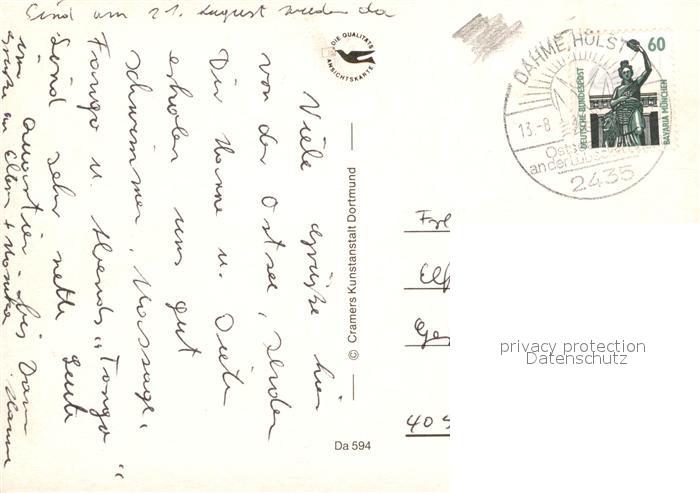 Sind am 21. August wieder da
Viele Grüße hier
von der Ostsee, senden
Dir Hanne u. Dieter
erholen uns gut
schwimmen, Massage,
Fango u. Abends „Tango“
Sind sehr nette Leute
im Quartier. bis Dann
Grüße an Eltern + Monika Hanne
DIE QUALITÄTS
ANSICHTSKARTE
© Cramers Kunstanstalt Dortmund
Da 594
DAHME, HOLST
13.-8
Osts
an der Lübecker
2435
60
DEUTSCHE BUNDESPOST
BAVARIA MÜNCHEN
40
privacy protection
Datenschutz